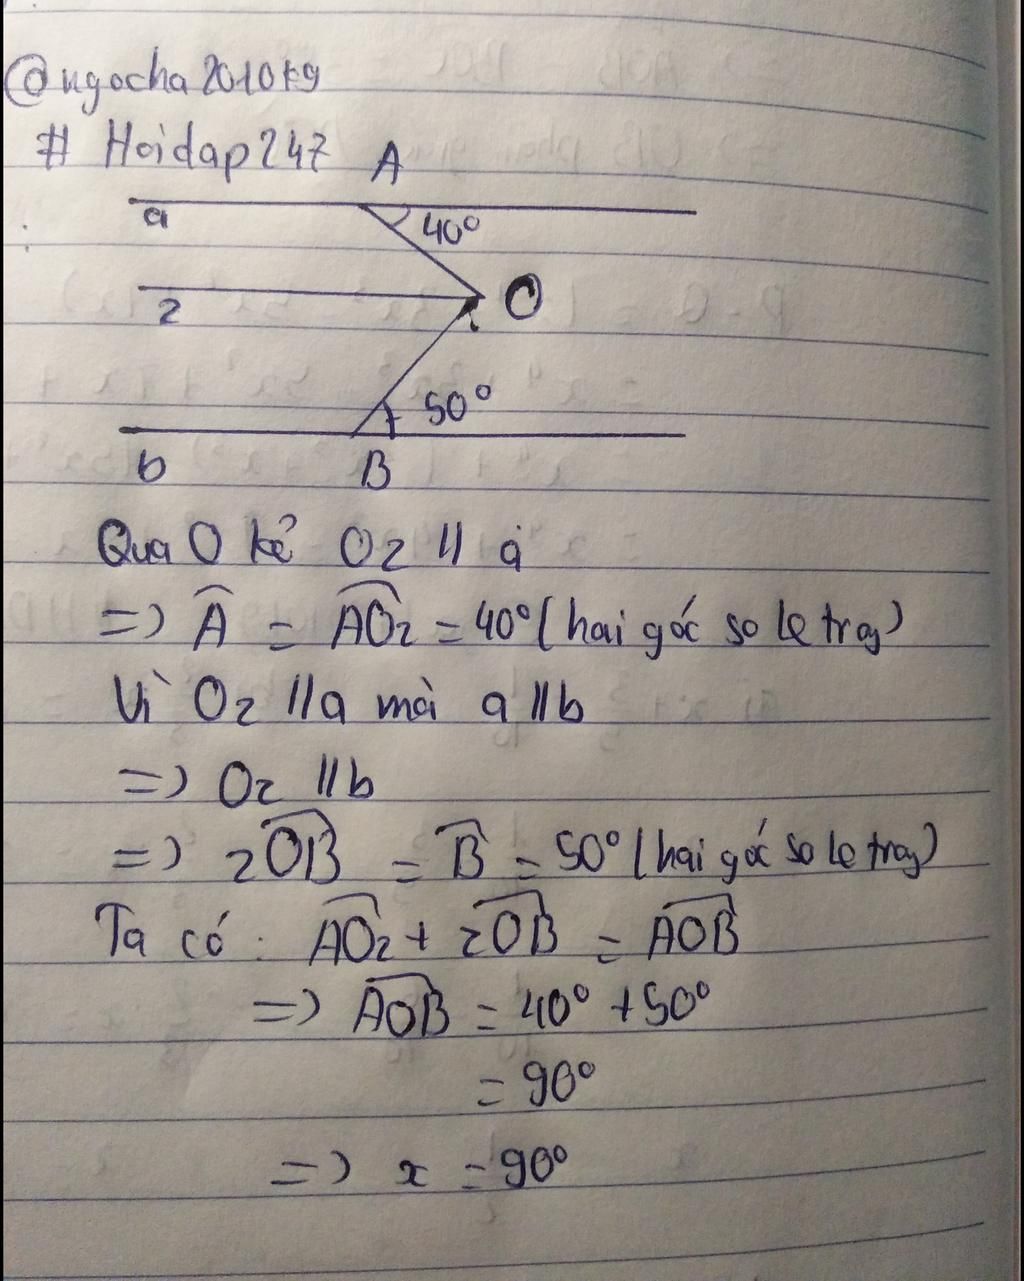 @ngocha2010k9
# Hoidap247
A
a
40°
z
O
50°
b
B
Qua O kẻ Oz // a
=> Â = AOz = 40° (hai góc so le trog)
Vì Oz // a mà a // b
=> Oz // b
=> zOB = B = 50° (hai góc so le trog)
Ta có: AOz + zOB = AOB
=> AOB = 40° + 50°
= 90°
=> x = 90°